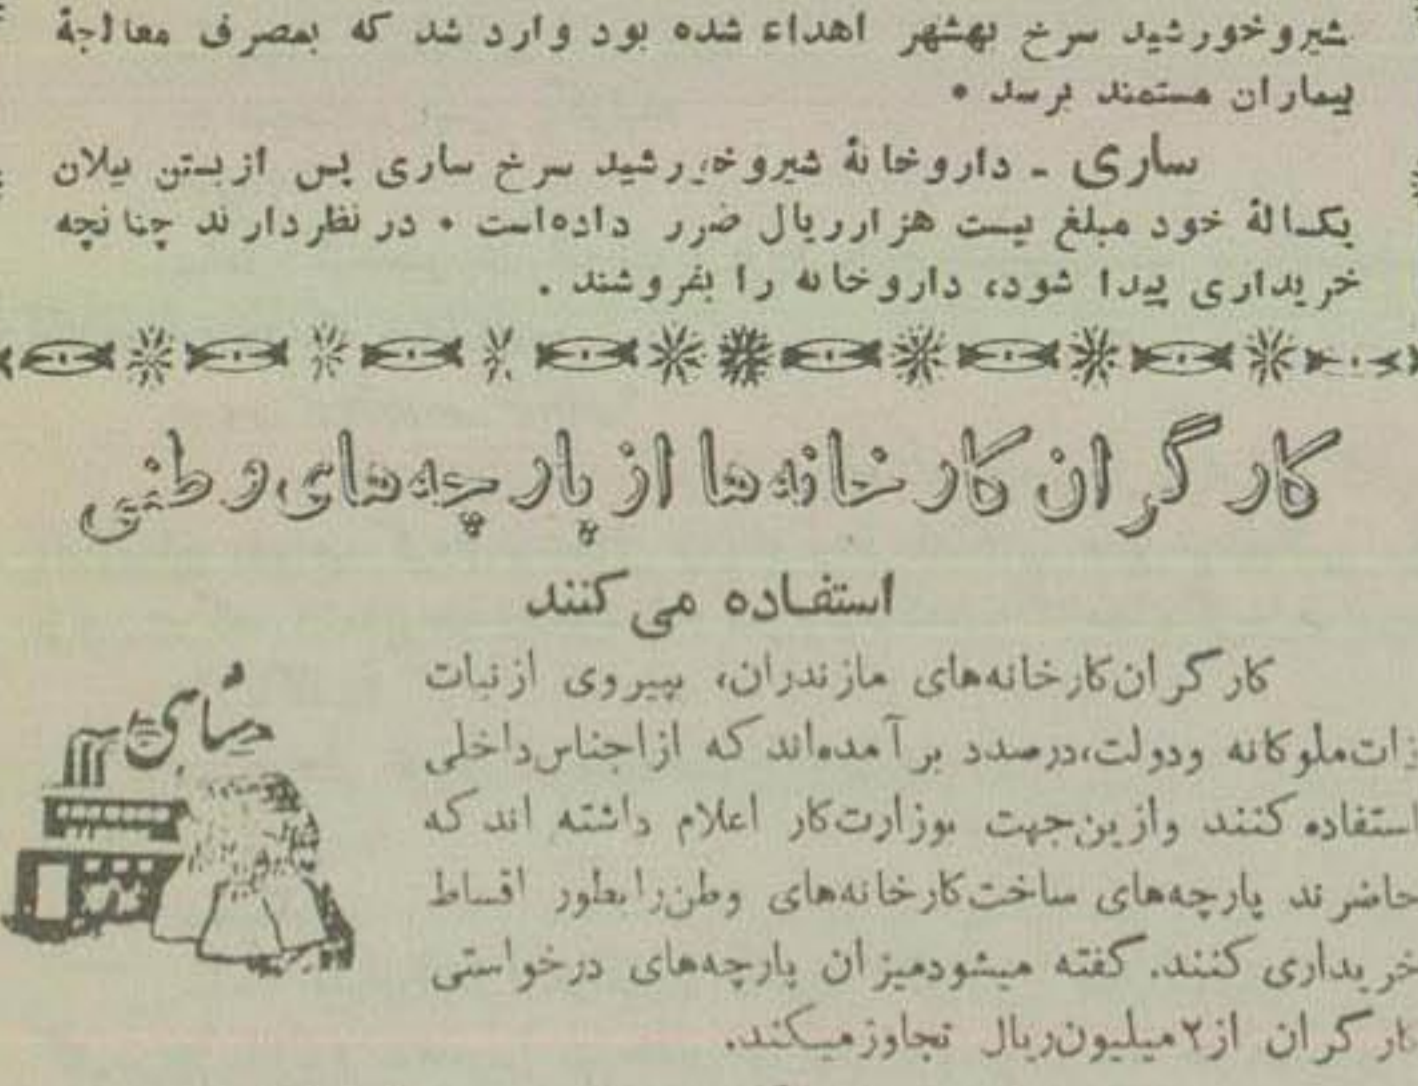 شیروخورشید سرخ بهشهر اهداء شده بود وارد شد که بمصرف معالجهٔ
بیماران مستمند برسد •
ساری - داروخانهٔ شیروخورشید سرخ ساری پس ازبستن بیلان
یکسالهٔ خود مبلغ بیست هزارریال ضرر داده‌است • در نظردارند چنانچه
خریداری پیدا شود، داروخانه را بفروشند .
کارگران کارخانه‌ها از پارچه‌های وطنی
استفاده می‌کنند
کارگران‌کارخانه‌های مازندران، بپیروی ازنیات
ذات‌ملوکانه ودولت،درصدد برآمده‌اند که ازاجناس‌داخلی
استفاده کنند وازین‌جهت بوزارت‌کار اعلام داشته اند که
حاضرند پارچه‌های ساخت‌کارخانه‌های وطن‌رابطور اقساط
خریداری کنند. گفته میشودمیزان پارچه‌های درخواستی
کارگران از۲میلیون‌ریال تجاوزمیکند.